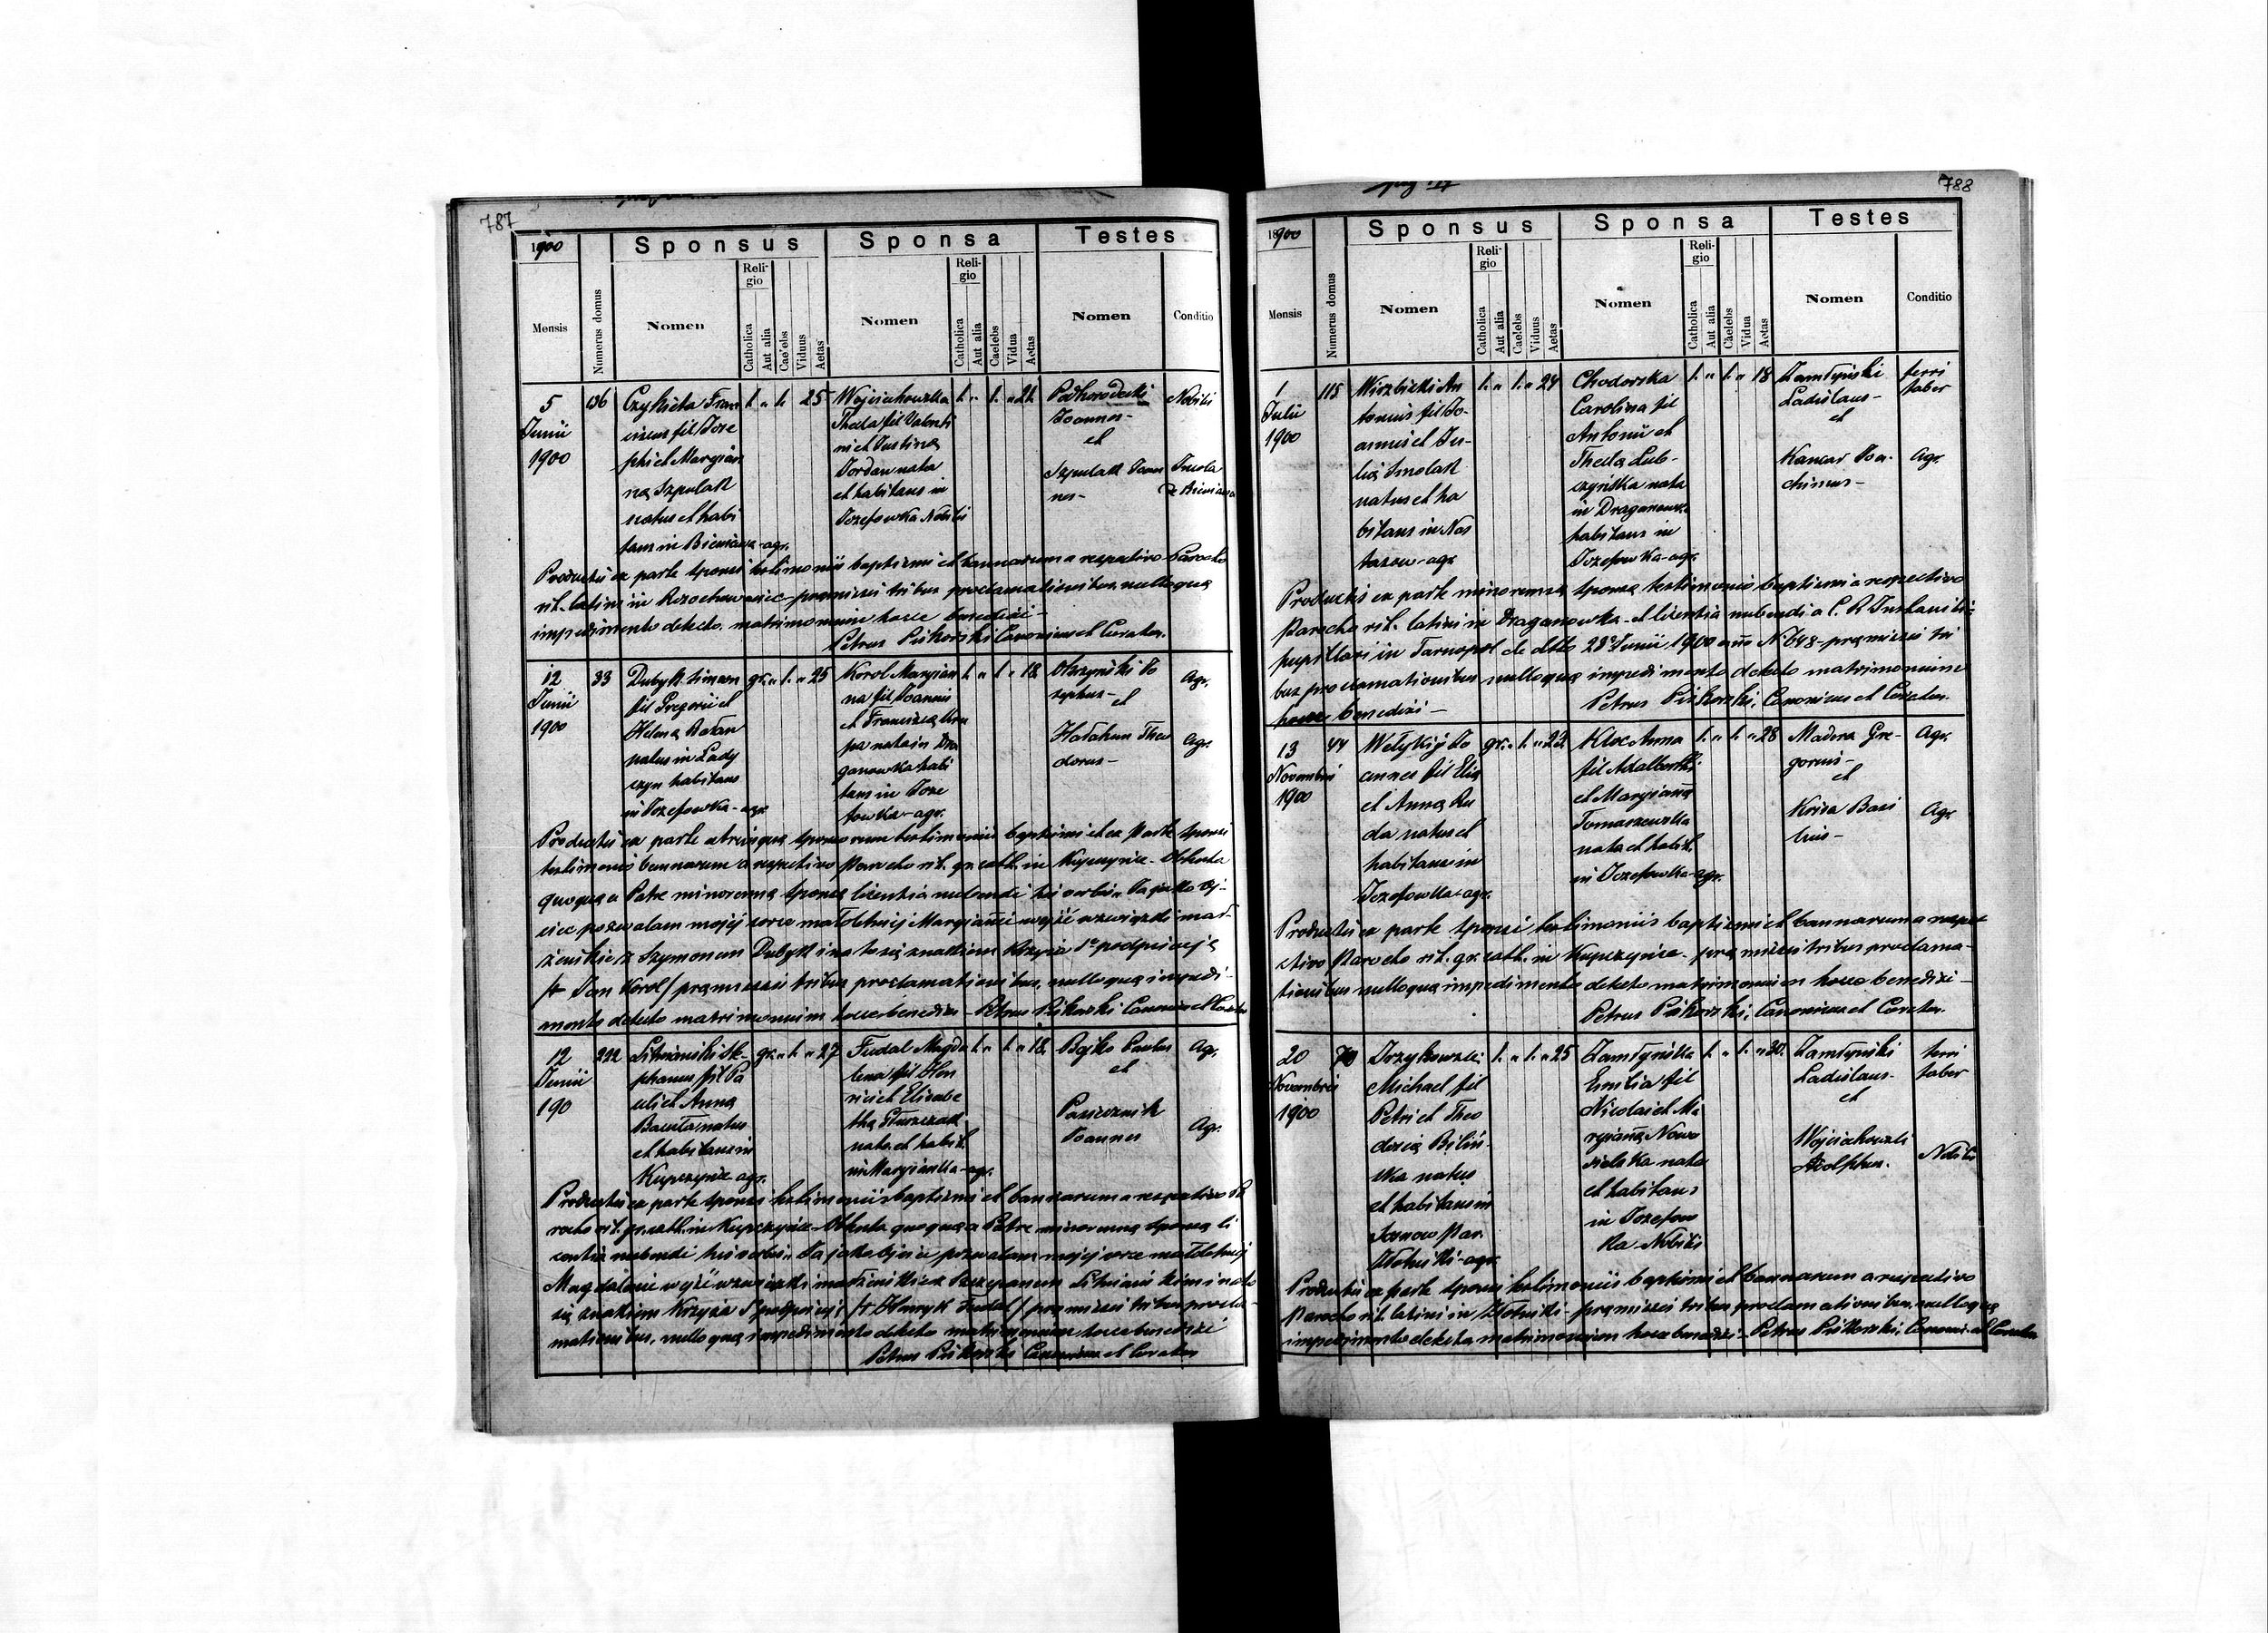 787
1900
Sponsus
Sponsa
Testes
Mensis
Numerus domus
Nomen
Religio
Catholica
Aut alia
Caelebs
Viduus
Aetas
Nomen
Religio
Catholica
Aut alia
Caelebs
Vidua
Aetas
Nomen
Conditio
5
Junii
1900
136
Czykieta Fran
ciscus fil Jose
phi et Maryan
nę Szpulak
natus et habi
tans in Bieniawa-agr.
1. „ 1. 25
Wojciechowska
Thecla fil Valenti
ni et Justinę
Jordan nata
et habitans in
Jozefowka Nobilis
1. „ 1. „ 21.
Podhorodecki
Joannes-
et
Szpulak Joan
nes-
Nobilis
Incola
de Bieniawa
Productis ex parte sponsi testimoniis baptismi et bannorum a respectivo Parocho
rit. latini in - pręmissis tribus proclamationibus nulloquę
impedimento detecto matrimonium hocce benedixi-
Petrus Piskorski Canonicus et Curatus.
12
Junii
1900
33
Dubyk Simeon
fil Gregorii et
Helenę
natus in Lady
czyn habitans
in Jozefowka-agr.
gr. „ 1. „ 25
Korol Maryan
na fil Joannis
et Franciscę
pa nata in Dra
ganowka habi
tans in Joze
fowka-agr.
1. „ 1. „ 18.
Olszyński Jo
sephus-
et
Hałahun Theo
dorus-
Agr.
Agr.
Productis ex parte utriusquę sponsorum testimoniis baptismi et ex parte sponsi
testimonio bannorum a respectivo Parocho rit. gr. cath. in Kupczyńce- Obtenta
quoquę a Patre minorennę sponsę licentia nubendi his verbis „Ja jako oj-
ciec pozwalam mojéj córce małoletniej Maryannie wejść w związki mał-
żeńskie z Szymonem Dubyk i na to się znakiem krzyża Sgo podpisuję
/+ Jan Korol/ pręmissis tribus proclamationibus, nulloquę impedi-
mento detecto matrimonium hocce benedixi- Petrus Piskorski Canonicus et Curatus
12
Junii
190
222
Litwiński Ste-
phanus fil Pa
uli et Annę
natus
et habitans in
Kupczyńce agr.
gr. „ 1. „ 27
Fudal Magda
lena fil Hen
rici et Elisabe
thę
nata et habit.
in Maryanka-agr.
1. „ 1. „ 18.
Bojko Paulus
et
Pasiecznik
Joannes
Agr.
Agr.
Productis ex parte sponsi testimoniis baptismi et bannorum a respectivo Pa
rocho rit. gr. cath. in Kupczyńce- Obtenta quoquę a Patre minorennę sponsę li
centia nubendi his verbis „Ja jako ojciec pozwalam mojej córce małoletniej
Magdalenie wejść w związki małżeńskie z Szczepanem Litwińskim i na to
się znakiem krzyża S podpisuję /+ Henryk Fudal/ pręmissis tribus procla-
mationibus, nulloquę impedimento detecto matrimonium hocce benedixi
Petrus Piskorski Canonicus et Curatus
788
1900
Sponsus
Sponsa
Testes
Mensis
Numerus domus
Nomen
Religio
Catholica
Aut alia
Caelebs
Viduus
Aetas
Nomen
Religio
Catholica
Aut alia
Caelebs
Vidua
Aetas
Nomen
Conditio
1
Julii
1900
115
Wierzbicki An
tonius fil Jo-
annis et Ju-
lię Smolak
natus et ha
bitans in Nas
tasow-agr.
1. „ 1. „ 24
Chodorska
Carolina fil
Antonii et
Theclę Lub-
czyńska nata
in Draganowka
habitans in
Jozefowka-agr.
1. „ 1. „ 18
Zamłyński
Ladislaus-
et
Kancar Joa-
chimus-
ferri
faber
Agr.
Productis ex parte minorennę sponsę testimonio baptismi a respectivo
Parocho rit. latini in Draganowka- et licentia nubendi a C. R. Instantia
pupillari in Tarnopol de dtto 28 Junii 1900 ann N 7648- pręmissis tri
bus proclamationibus nulloquę impedimento detecto matrimonium
hocce benedixi-
Petrus Piskorski, Canonicus et Curatus.
13
Novembris
1900
44
Wełykij Jo
annes fil Elię
et Annę Ru
da natus et
habitans in
Jozefowka-agr.
gr. „ 1. „ 23.
Kloc Anna
fil Adalberti
et Maryannę
Tomaszewska
nata et habit.
in Jozefowka-agr.
1. „ 1. „ 28
Madera Gre-
gorius-
et
Koisa Basi
lius-
Agr.
Agr
Productis ex parte sponsi testimoniis baptismi et bannorum a respe
ctivo Parocho rit. gr. cath. in Kupczyńce- pręmissis tribus proclama-
tionibus nulloquę impedimento detecto matrimonium hocce benedixi-
Petrus Piskorski, Canonicus et Curatus.
20
Novembris
1900
70
Drzykowski
Michael fil
Petri et Theo
dozię Biliń-
ska natus
et habitans in
Janow par.
Złotniki-agr.
1. „ 1. „ 25
Zamłyńska
Emilia fil
Nicolai et Ma
ryannę Nowo
sielska nata
et habitans
in Jozefow
ka-Nobilis
1. „ 1. „ 30.
Zamłyński
Ladislaus-
et
Wojciechowski
Adolphus.
ferri
faber
Nobilis
Productis ex parte sponsi testimoniis baptismi et bannorum a respectivo
Parocho rit. latini in Złotniki- pręmissis tribus proclamationibus, nulloquę
impedimento detecto matrimonium hocce benedixi- Petrus Piskorski, Canoni. et Curatus